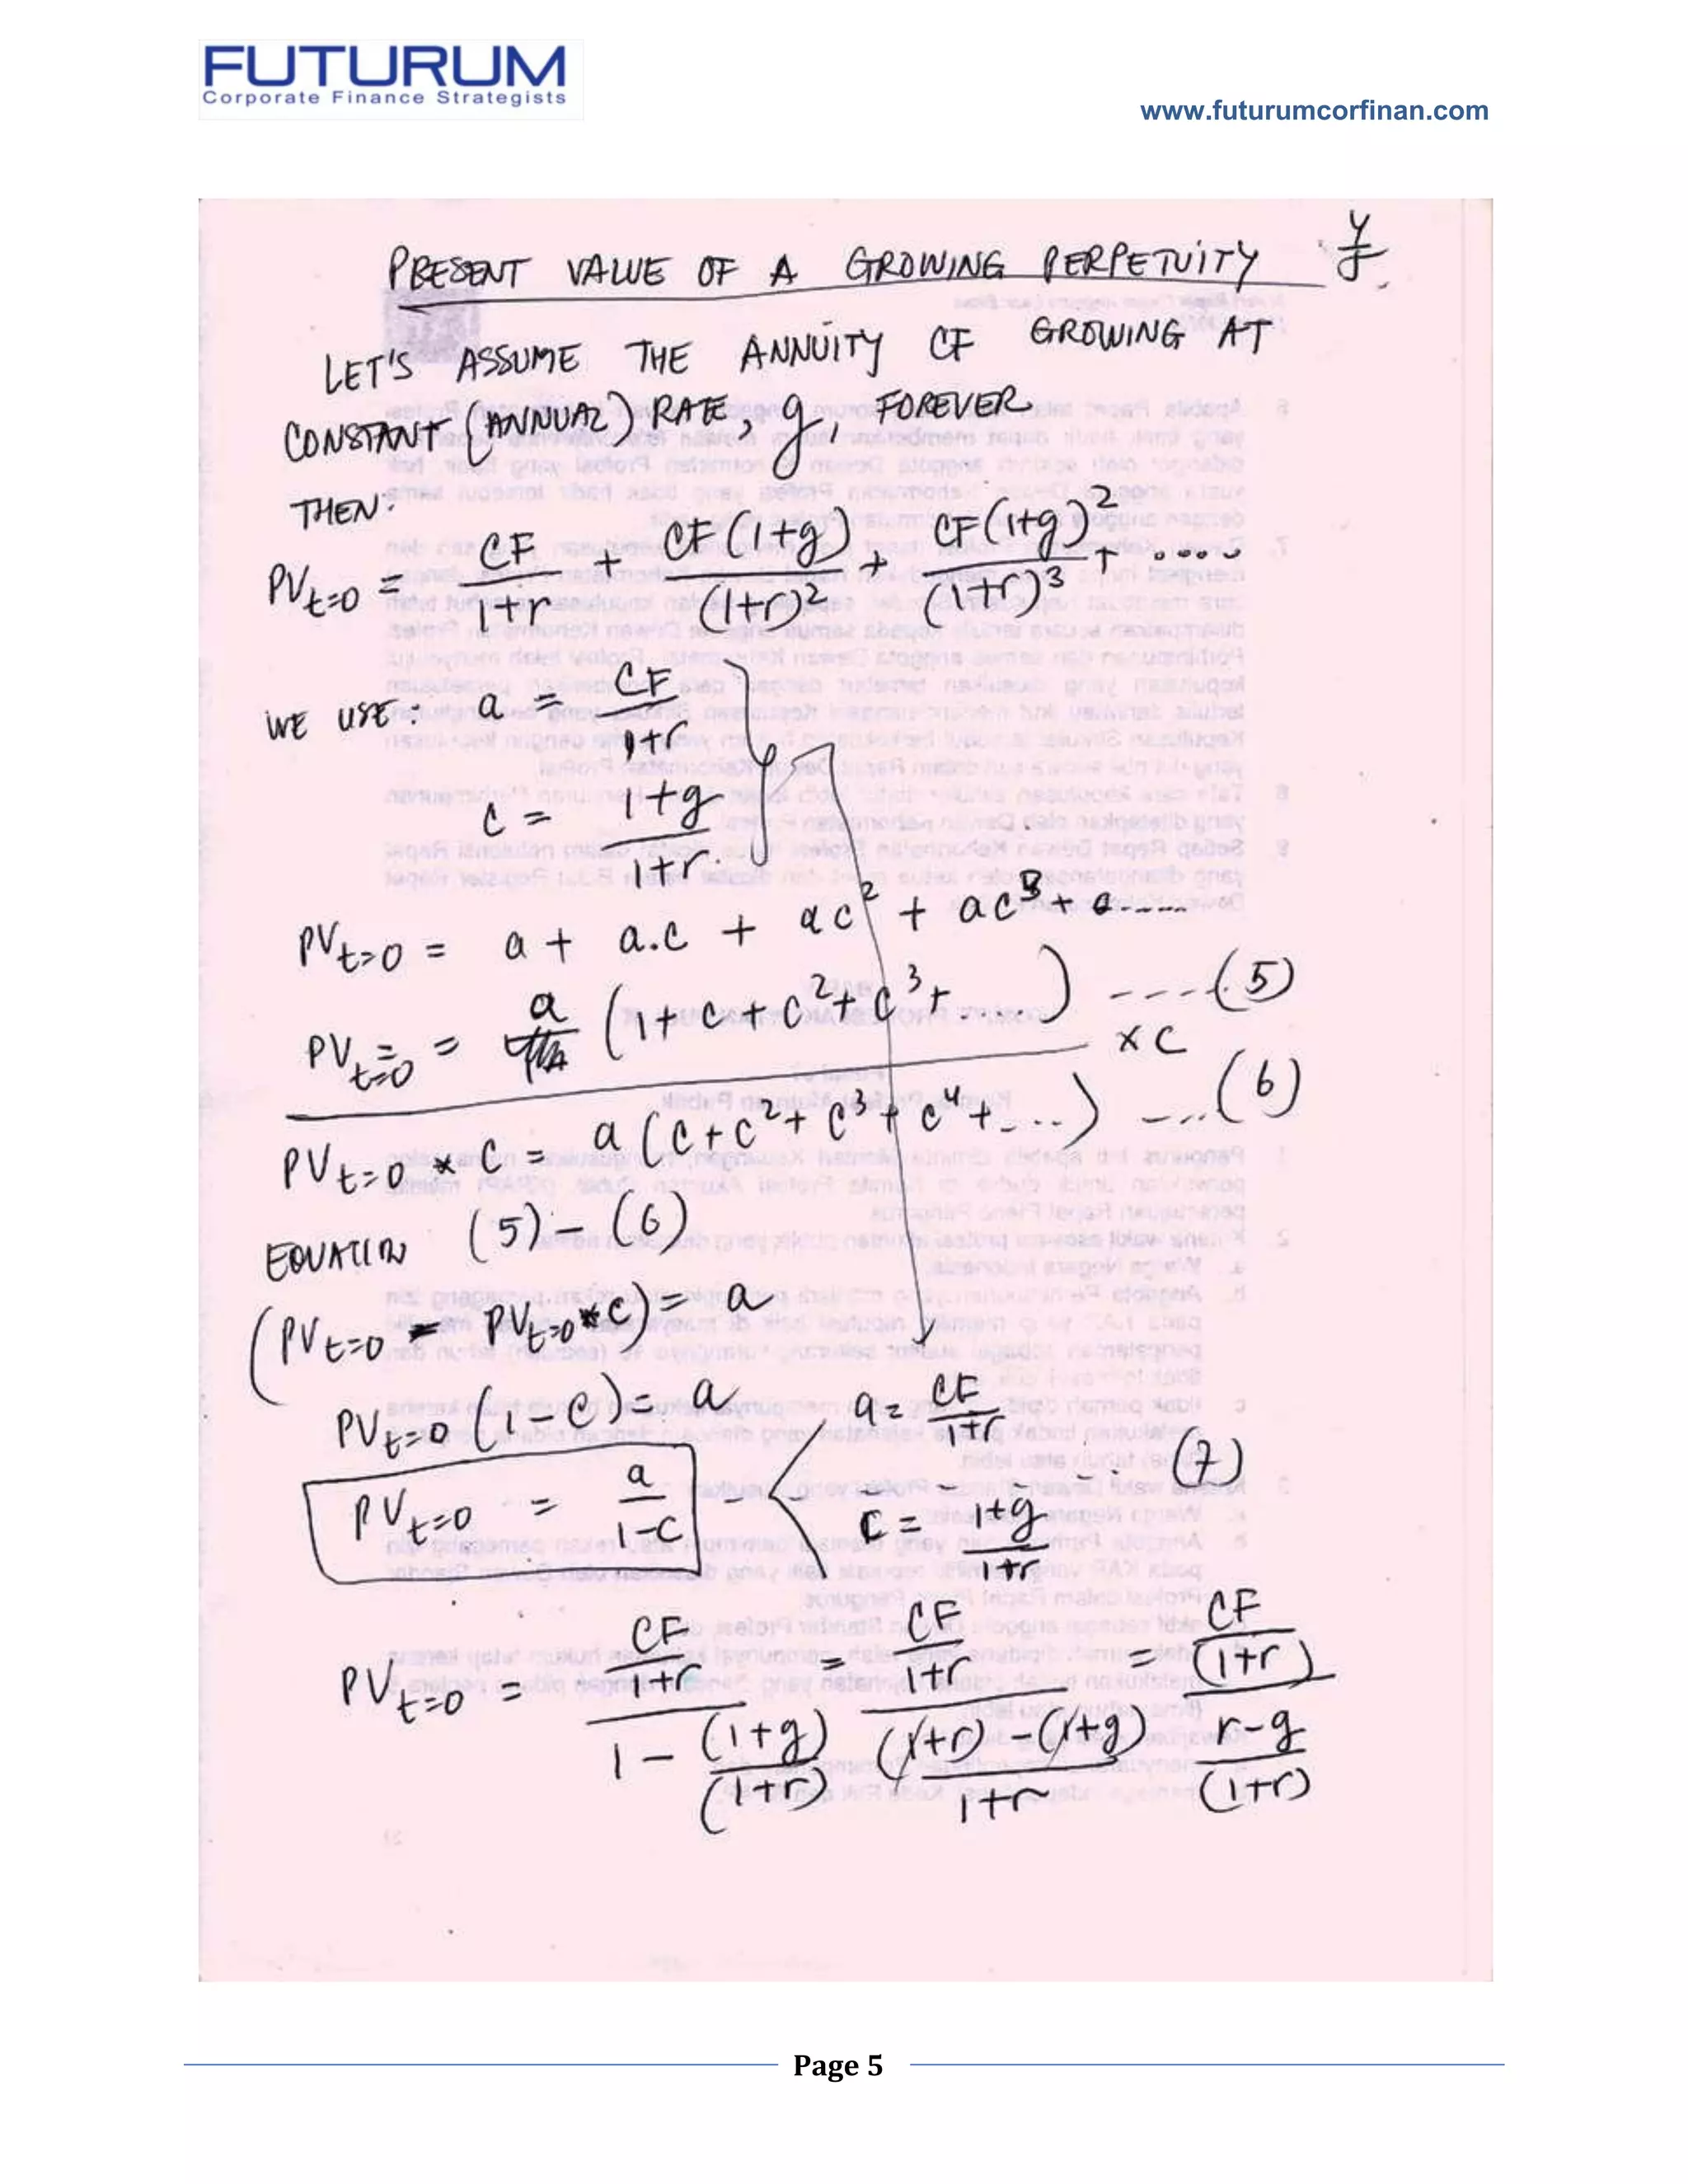 FUTURUM
Corporate Finance Strategists
www.futurumcorfinan.com
PRESENT VALUE OF A GROWING PERPETUITY
LET'S ASSUME THE ANNUITY CF GROWING AT
CONSTANT (ANNUAL) RATE, g, FOREVER.
THEN:
PVt=0 = CF/1+r + CF(1+g)/(1+r)² + CF(1+g)²/(1+r)³ + .....
WE USE: a = CF/1+r
c = 1+g/1+r
PVt=0 = a + a.c + ac² + ac³ + ......
PVt=0 = a (1+c+c²+c³+.....) ----(5)
x c
PVt=0 * c = a (c+c²+c³+c⁴+...) ----(6)
EQUATION (5) - (6)
(PVt=0 - PVt=0 * c) = a
PVt=0 (1-c) = a
PVt=0 = a/1-c --- a = CF/1+r
c = 1+g/1+r --- (7)
PVt=0 = CF/1+r / 1 - (1+g)/(1+r) = CF/1+r / (1+r)-(1+g)/1+r = CF/(1+r) / r-g/(1+r)
Page 5